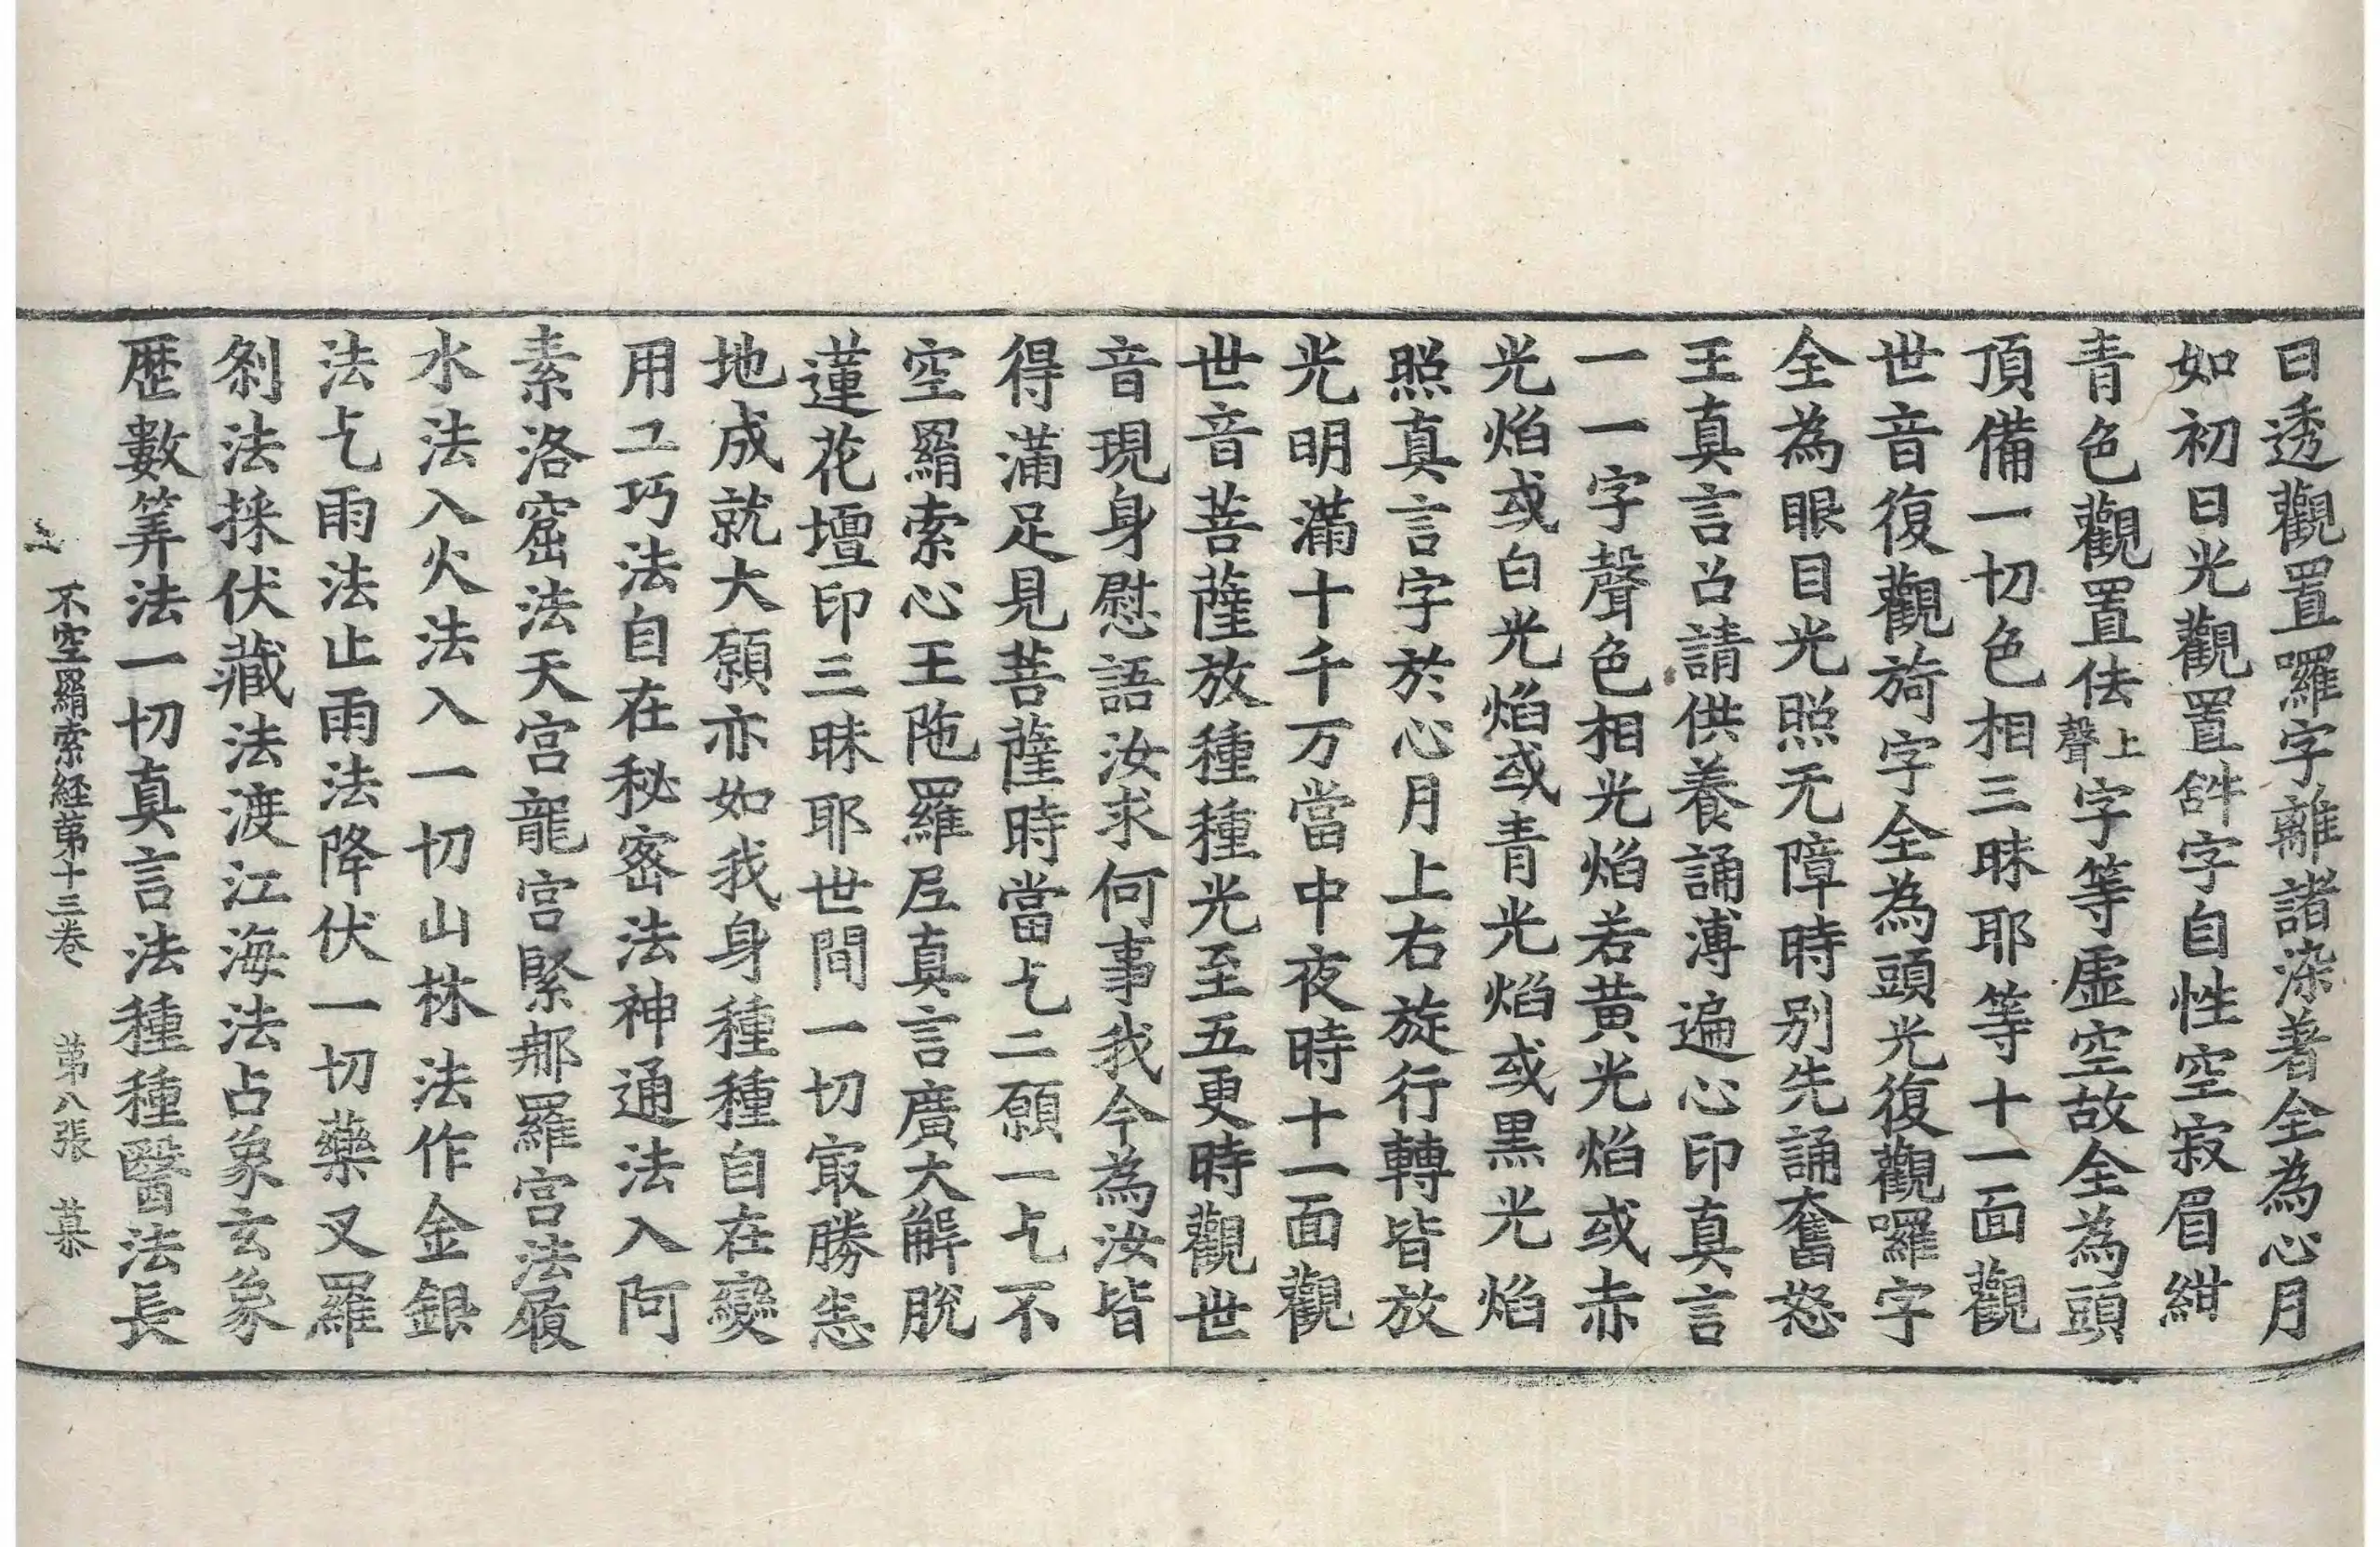 日透觀置囉字離諸染著全為心月
如初日光觀置𤙖字自性空寂眉紺
青色觀置佉上聲字等虛空故全為頭
頂備一切色相三昧耶等十一面觀
世音復觀旖字全為頭光復觀囉字
全為眼目光照无障時别先誦奮怒
王真言召請供養誦溥遍心印真言
一一字聲色相光焰若黃光焰或赤
光焰或白光焰或青光焰或黒光焰
照真言字於心月上右旋行轉皆放
光明滿十千万當中夜時十一面觀
世音菩薩放種種光至五更時觀世
音現身慰語汝求何事我今為汝皆
得滿足見菩薩時當乞二願一乞不
空羂索心王陁羅尼真言廣大解脫
蓮花壇印三昧耶世間一切㝡勝恙
地成就大願亦如我身種種自在變
用工巧法自在秘密法神通法入阿
素洛窟法天宮龍宮緊那羅宮法履
水法入火法入一切山林法作金銀
法乞雨法止雨法降伏一切藥叉羅
剎法採伏藏法渡江海法占象玄象
歷數筭法一切真言法種種醫法長
不空羂索経第十三卷 第八張 慕